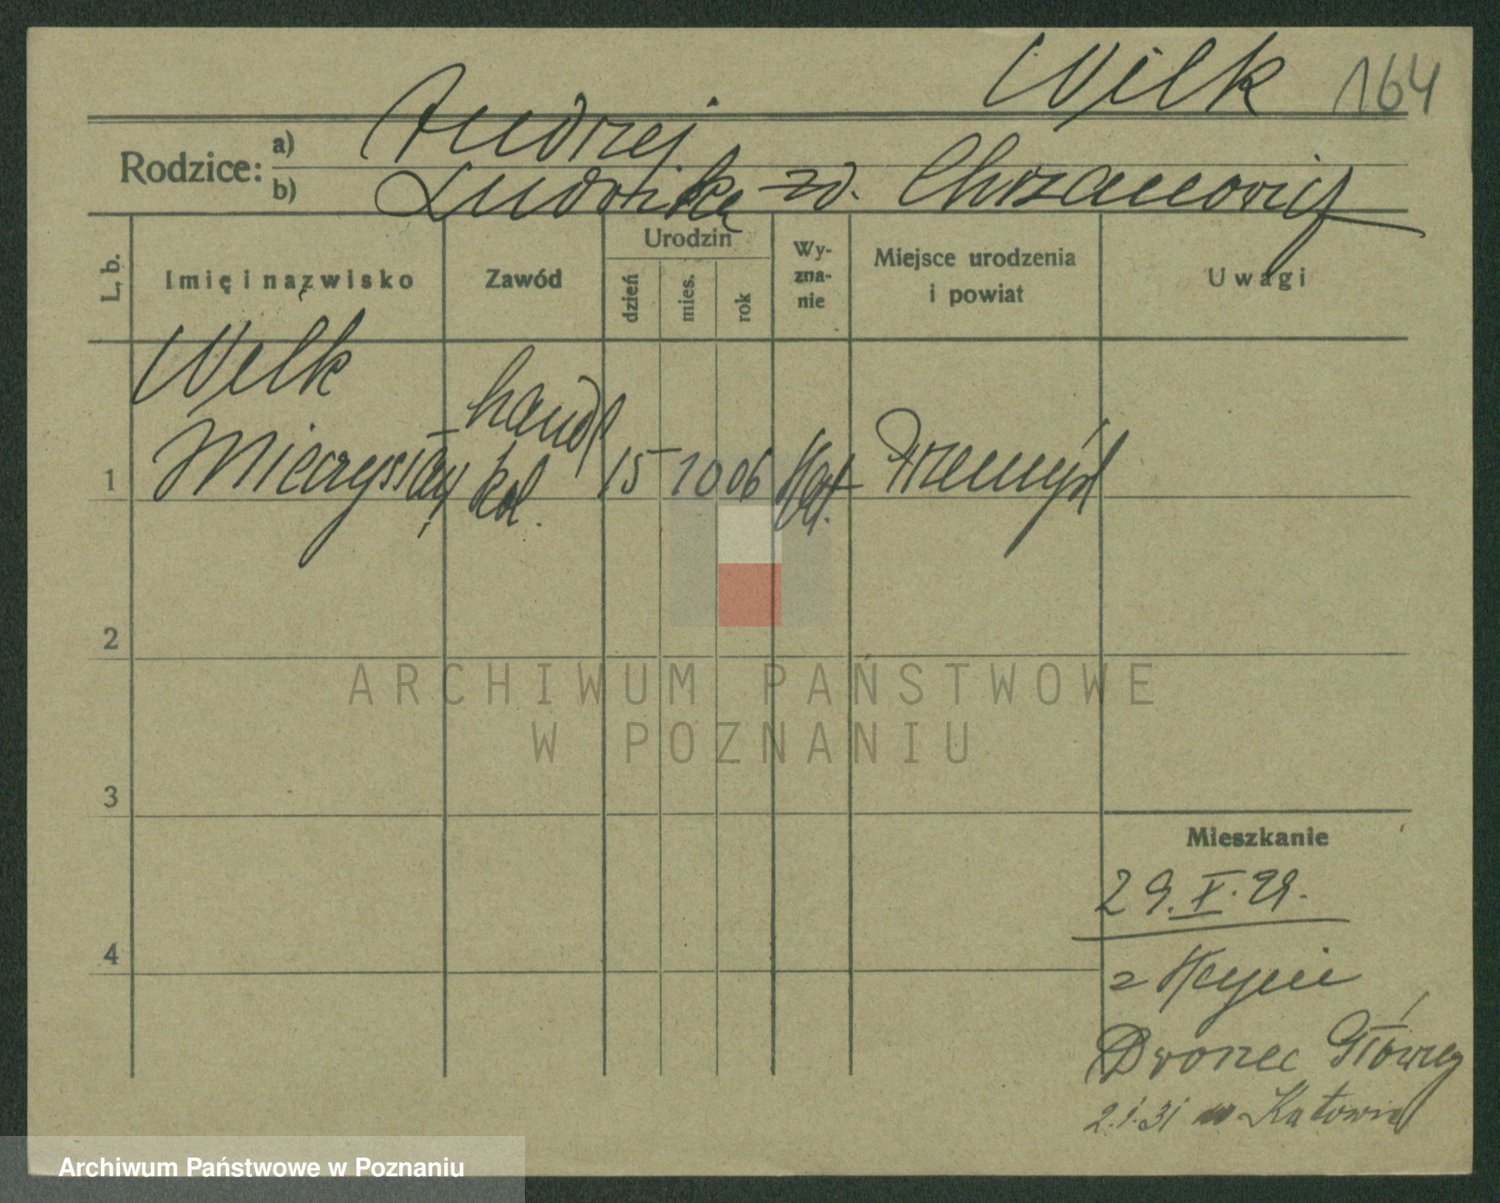 Wilk 164
Rodzice:
a) Andrzej
b) Ludwika zd. Chrzanowicz
L. b.
Imię i nazwisko
Zawód
Urodzin
dzień
mies.
rok
Wy-
zna-
nie
Miejsce urodzenia
i powiat
Uwagi
Wilk
handl
1 Mieczysław kol. 15 10 06 Kat. Przemyśl
2
3
4
ARCHIWUM PAŃSTWOWE
W POZNANIU
Mieszkanie
29.X.29.
z Kcyni
Dworzec Główny
2.1.31 Katowice
Archiwum Państwowe w Poznaniu